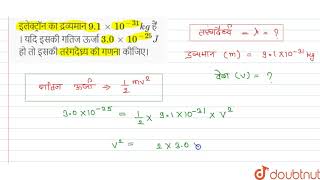 इलेक्ट्रॉन का द्रव्यमान 9.1 × 10⁻³¹ kg है
। यदि इसकी गतिज ऊर्जा 3.0 × 10⁻²⁵ J
हो तो इसकी तरंगदैर्ध्य की गणना कीजिए।
तरंगदैर्ध्य = λ = ?
द्रव्यमान (m) = 9.1×10⁻³¹ kg
वेग (v) = ?
गतिज ऊर्जा → 1/2 mv²
3.0 × 10⁻²⁵ = 1/2 × 9.1×10⁻³¹ × v²
v² = 2 × 3.0
doubtnut